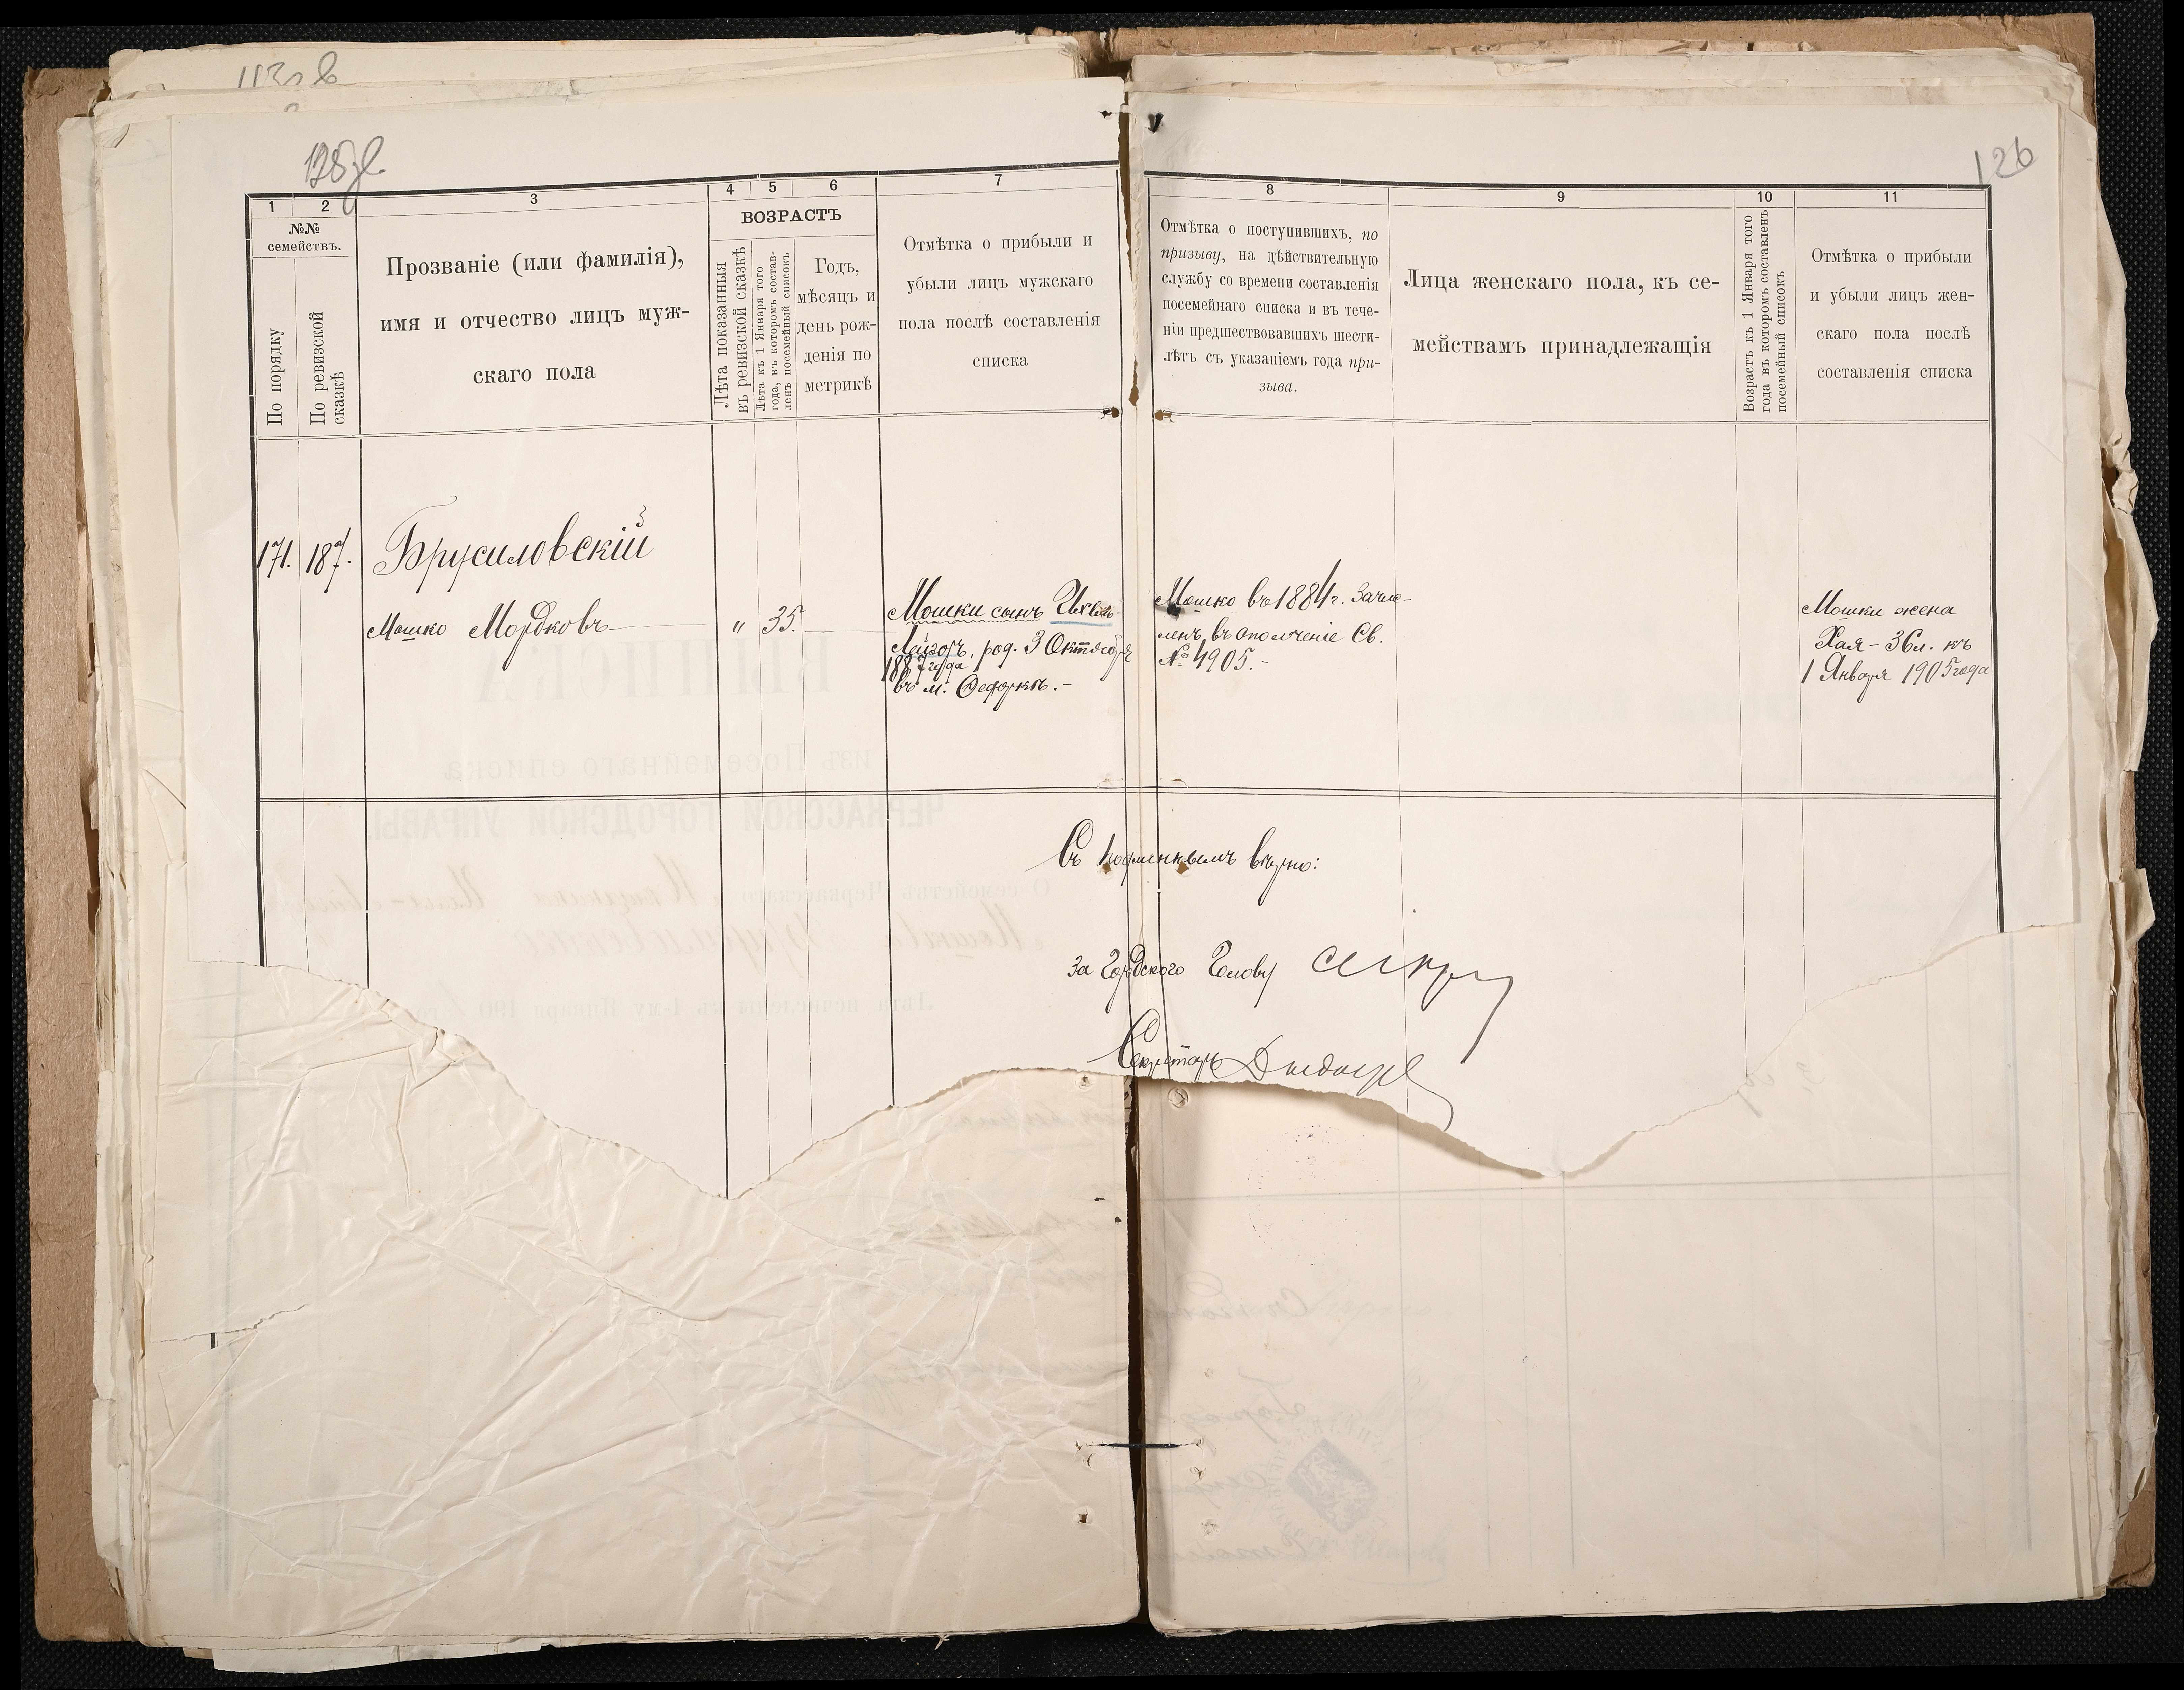 126
1
2
3
4
5
6
7
8
9
10
11
№№
семействъ.
По порядку
По ревизской
сказкѣ
Прозваніе (или фамилія),
имя и отчество лицъ муж-
скаго пола
ВОЗРАСТЪ
Лѣта показанныя
въ ревизской сказкѣ
Лѣта къ 1 Января того
года, въ которомъ состав-
ленъ посемейный списокъ
Годъ,
мѣсяцъ и
день рож-
денія по
метрикѣ
Отмѣтка о прибыли и
убыли лицъ мужскаго
пола послѣ составленія
списка
Отмѣтка о поступившихъ, по
призыву, на дѣйствительную
службу со времени составленія
посемейнаго списка и въ тече-
ніи предшествовавшихъ шести-
лѣтъ съ указаніемъ года при-
зыва.
Лица женскаго пола, къ се-
мействамъ принадлежащія
Возрастъ къ 1 Января того
года въ которомъ составленъ
посемейный списокъ
Отмѣтка о прибыли
и убыли лицъ жен-
скаго пола послѣ
составленія списка
171.
187.
Брусиловскій
Мошко Мордковъ
"
35.
Мошки сынъ
Лейзоръ, род. 3 Октября
1887 года
въ м.
Мошко въ 1884 г. зачис-
ленъ въ ополченіе Св.
№ 4905.-
Мошки жена
Хая - 36 л. къ
1 Января 1905 года
Съ подлиннымъ вѣрно:
За Городского Голову
Секретарь
ВЫПИСКА
изъ Посемейнаго списка
ЧЕРКАССКОЙ ГОРОДСКОЙ УПРАВЫ